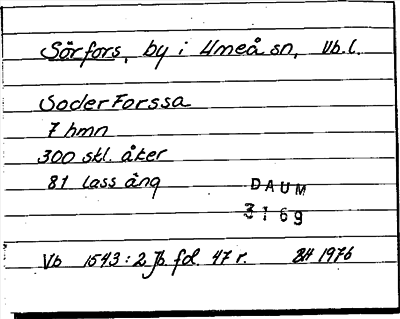 Sörfors, by i Umeå sn, Vb.l.
Soder Forssa
7 hmn
300 skl. åker
81 lass äng
DAUM
3169
Vb 1543:2 Jb fol. 47 r. BH 1976